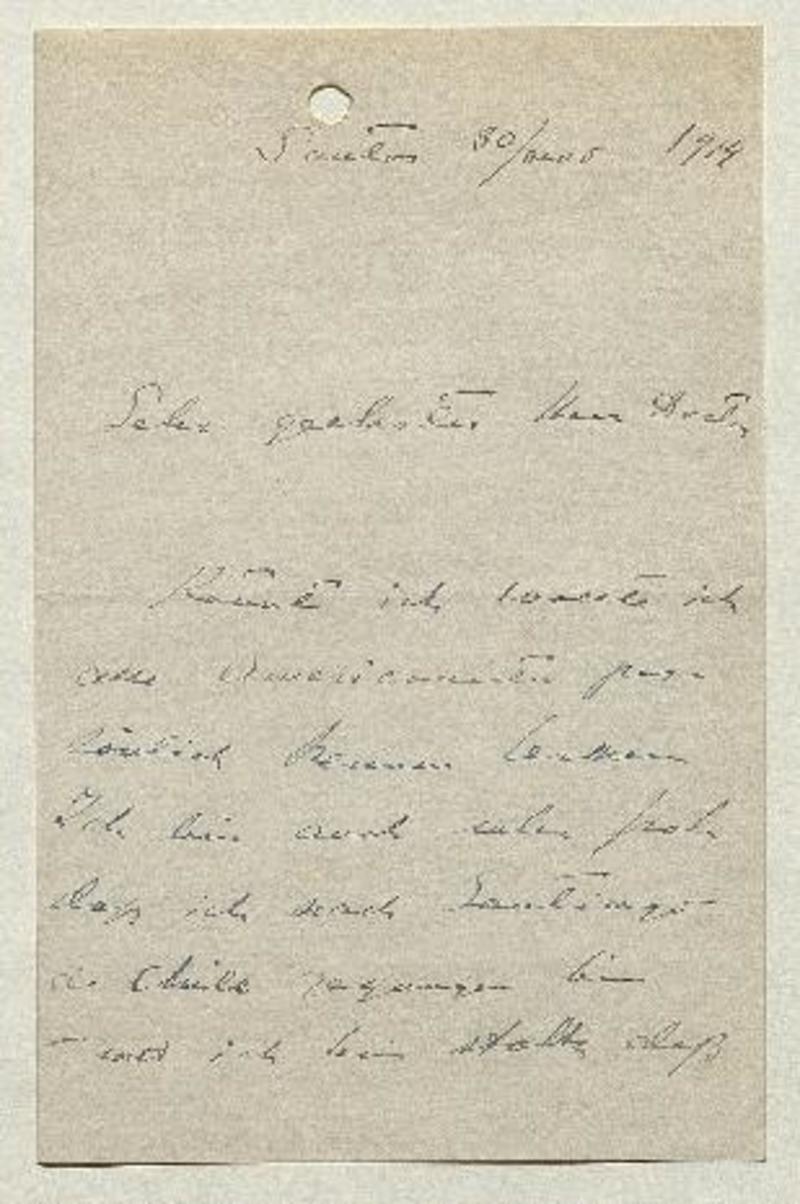 Santos 30/ 1914
Sehr geehrter Herr Doctor
Könnte ich ich
alle Americanisten per
sönlich kennen lernen
Ich bin auch sehr froh
daß ich nach Santiago
de Chile gegangen bin
und ich bin stoltz daß